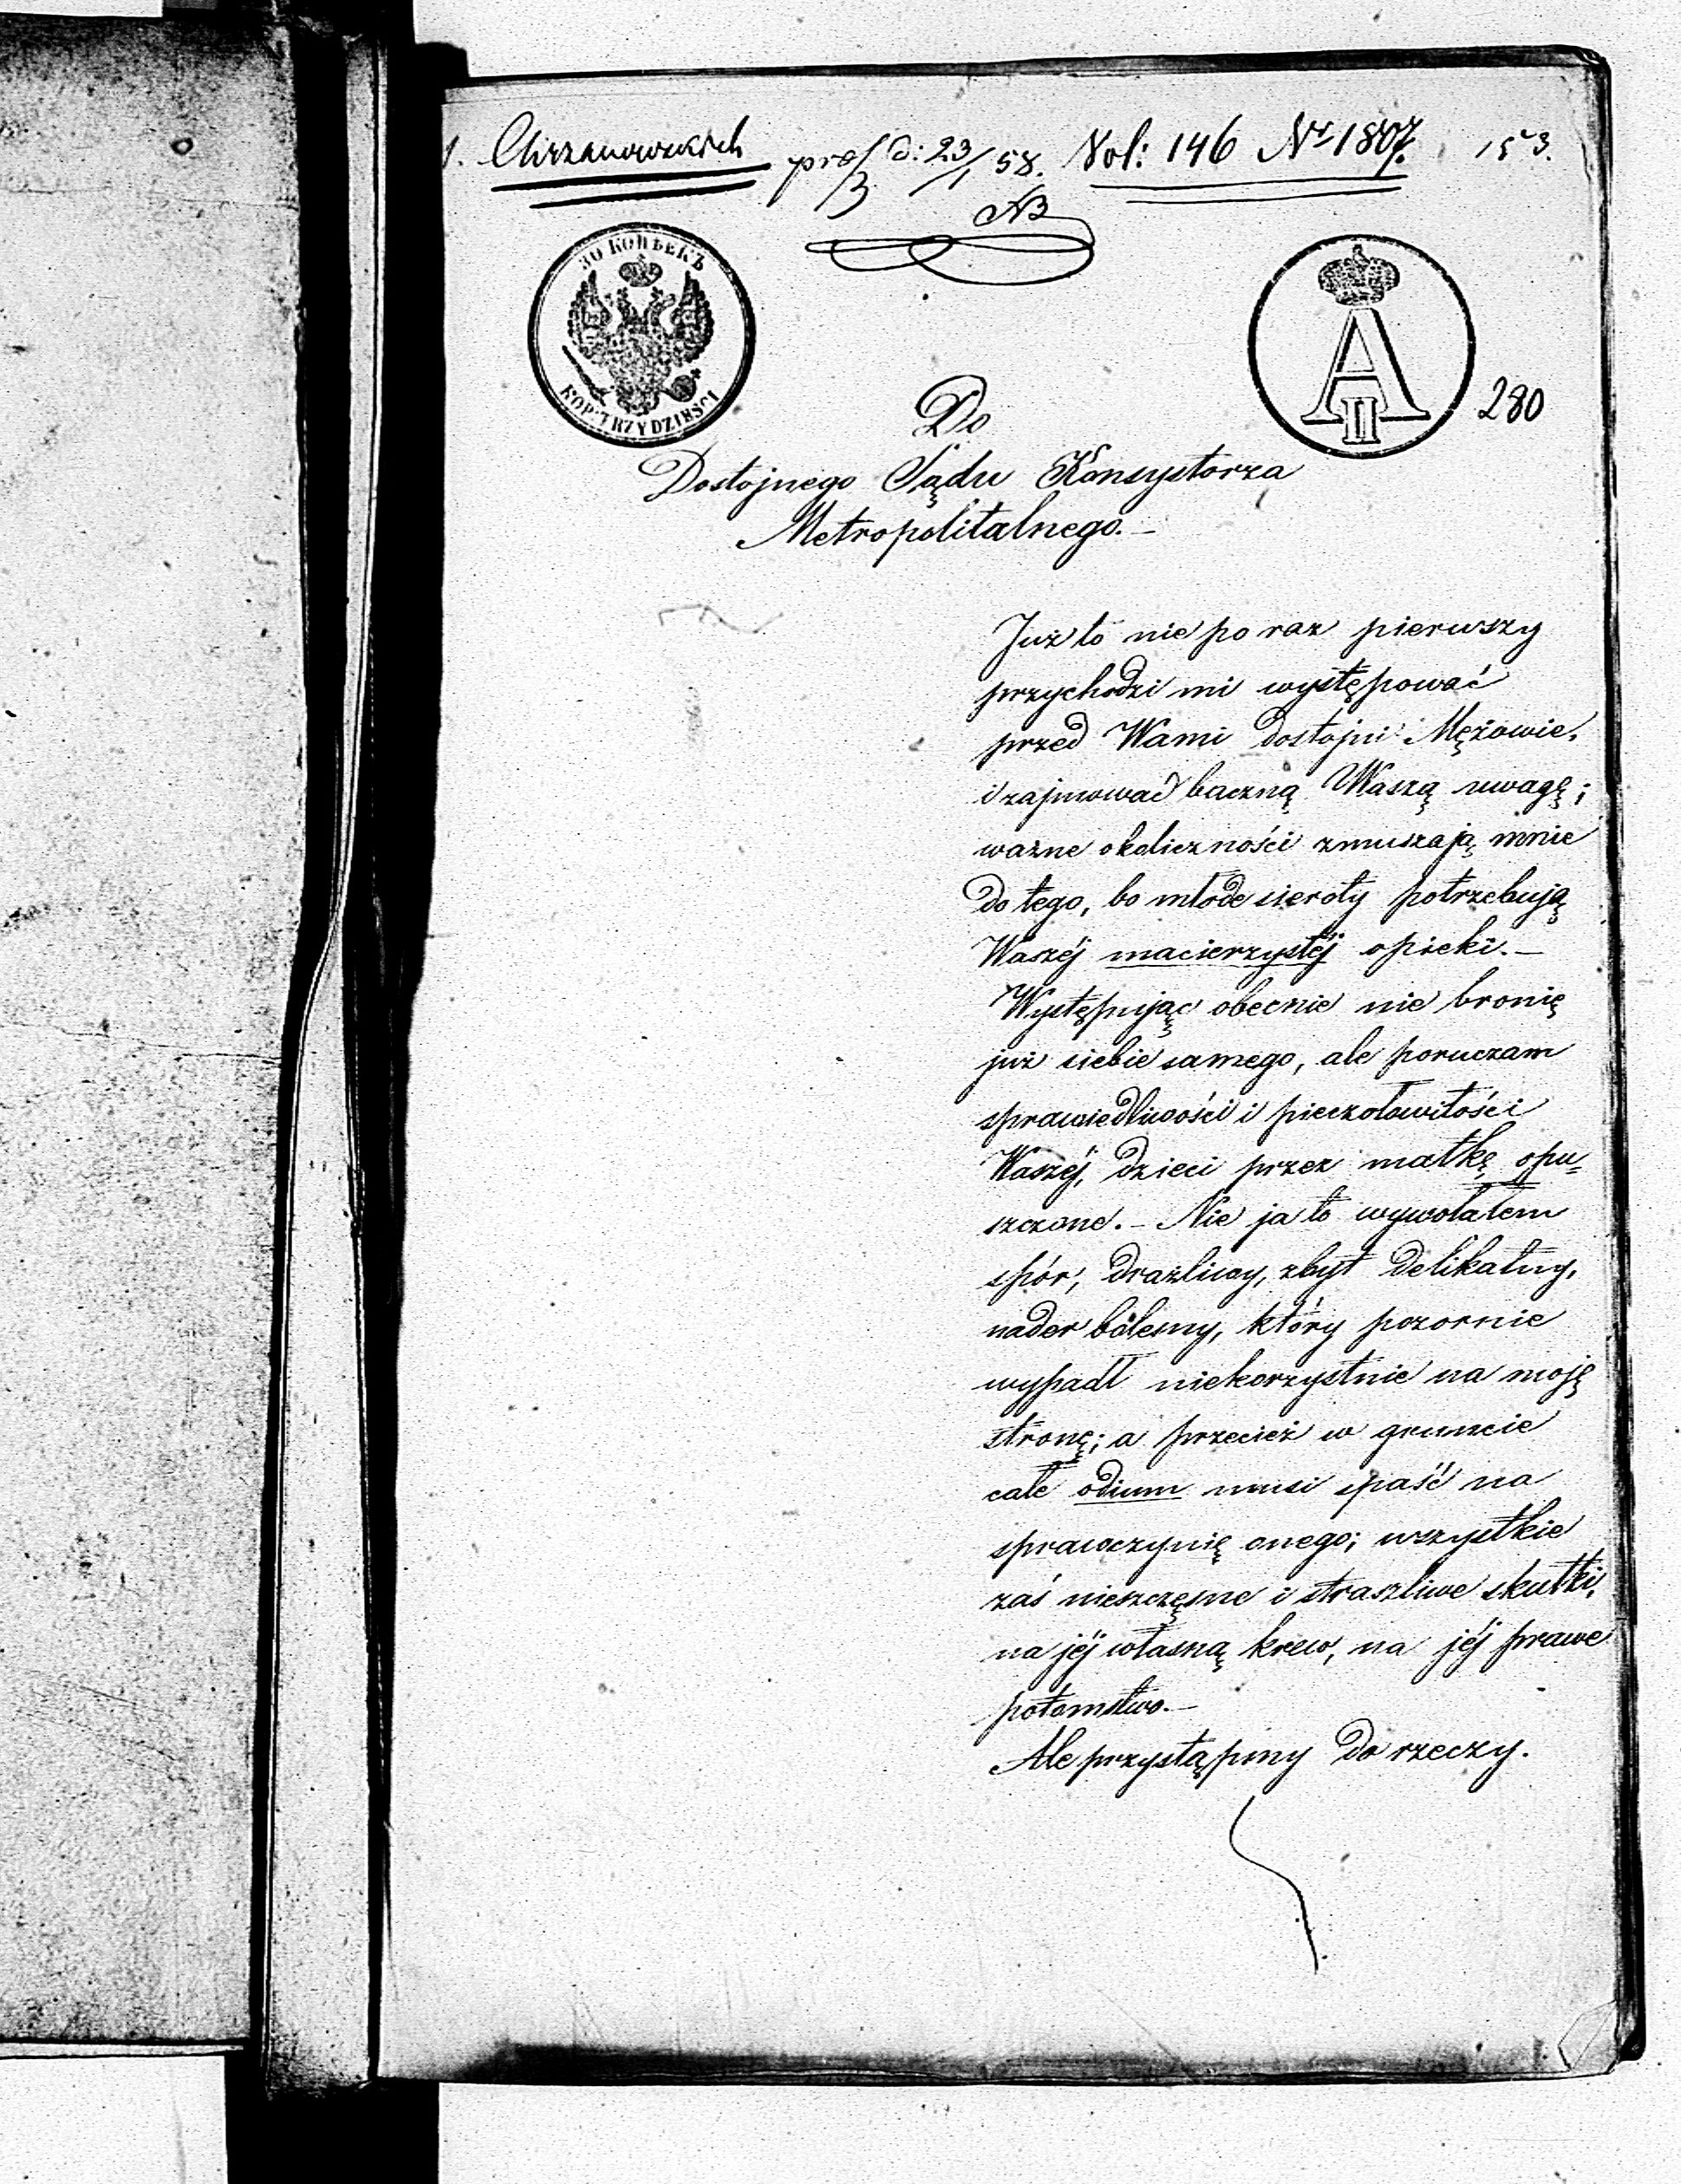 1. Chrzanowskich praes d: 23/1 58. Vol: 146 Nr 1807. 153.
NB
30 КОПѢЕКЪ
KOP: TRZYDZIEŚCI
A II
280
Do
Dostojnego Sądu Konsystorza
Metropolitalnego.—
Już to nie po raz pierwszy
przychodzi mi występować
przed Wami dostojni Mężowie,
i zajmować baczną Waszą uwagę;
ważne okoliczności zmuszają mnie
do tego, bo młode sieroty potrzebują
Waszéj macierzystéj opieki.—
Występując obecnie nie bronię
już siebie samego, ale poruczam
sprawiedliwości i pieczołowitości
Waszéj, dzieci przez matkę opu=
szczone.— Nie ja to wywołałem
spór, drażliwy, zbyt delikatny,
nader bolesny, który pozornie
wypadł niekorzystnie na moję
stronę; a przecież w gruncie
całe odium musi spaść na
sprawczynię onego; wszystkie
zaś nieszczęsne i straszliwe skutki,
na jéj własną krew, na jéj prawe
potomstwo.—
Ale przystąpmy do rzeczy.